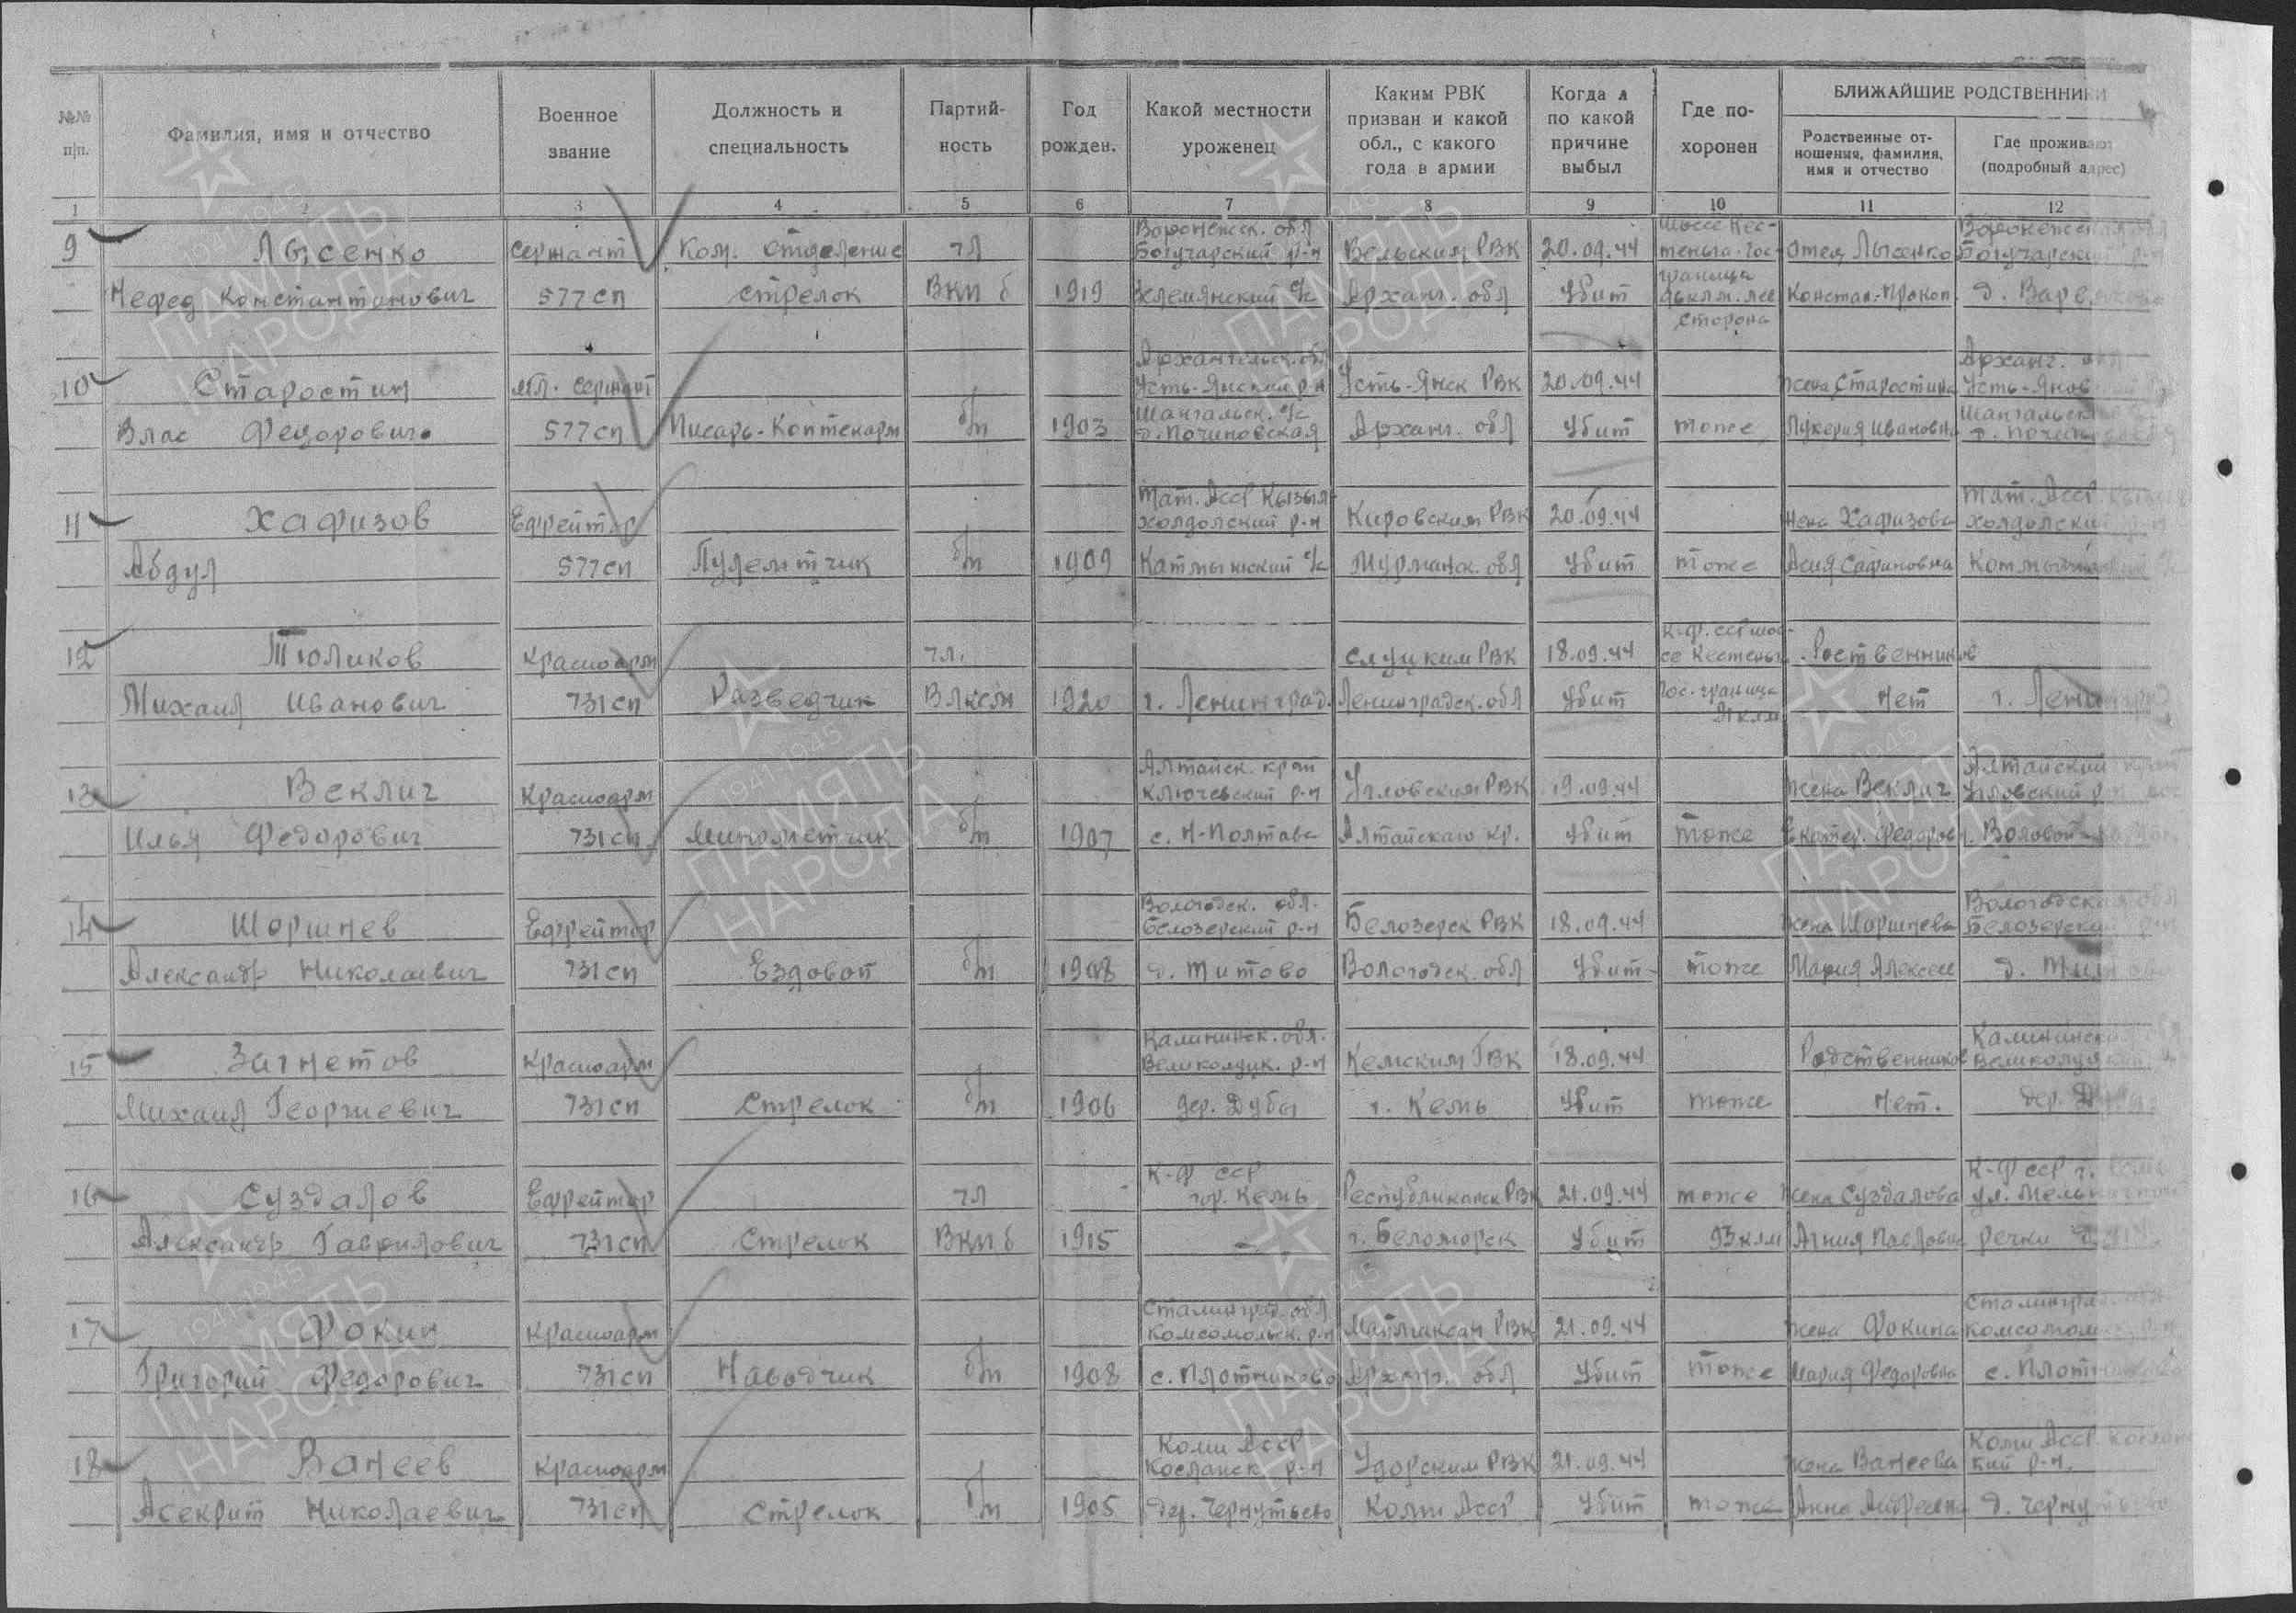 №№ п/п.
Фамилия, имя и отчество
Военное звание
Должность и специальность
Партий-ность
Год рожден.
Какой местности уроженец
Каким РВК призван и какой обл., с какого года в армии
Когда и по какой причине выбыл
Где по-хоронен
БЛИЖАЙШИЕ РОДСТВЕННИКИ
Родственные от-ношения, фамилия, имя и отчество
Где проживают (подробный адрес)
1 2 3 4 5 6 7 8 9 10 11 12
Воронежск. обл Шоссе Кес- Воронежская обл
9 Лысенко сержант Ком. отделение чл Богучарский р-н Вельским РВК 20.09.44 теньга-Гос- отец Лысенко Богучарский р-н
граница
Нефед Константинович 577 сп стрелок ВКП б 1919 с/с Арханг. обл Убит Констан. Прокоп д.
сторона
Архангельск. обл Арханг. обл
10 Старостин Мл. сержант Усть-Янский р-н Усть-Янск РВК 20.09.44 жена Старостина Усть-Янов
Шангальск. с/с Шангальск
Влас Федорович 577 сп Писарь-Коптенарм б/п 1903 д. Починовская Арханг. обл Убит тоже Лукерия Ивановн. д. Почин
Тат. Асср Кызыл Тат. Асср
11 Хафизов Ефрейтор холдолский р-н Кировским РВК 20.09.44 жена Хафизова холдолский р-н
Абдул 577 сп Пулемтчик б/п 1909 Катмышский с/с Мурманск. обл Убит тоже Асия Сафиновна Котмыш
К-Ф. сср шос-
12 Тюликов Красноарм чл. слуцким РВК 18.09.44 се Кестеньг. Роственников
Михаил Иванович 731 сп Разведчик Влксм 1920 г. Ленинград. Ленинградск. обл Убит Гос. граница нет г. Ленинград
91 клм
Алтайск. край Алтайский край
13 Веклич Красноарм Ключевский р-н Угловским РВК 19.09.44 жена Веклич Угловский р-н
Илья Федорович 731 сп Минометчик б/п 1907 с. Н-Полтава Алтайскаго кр. Убит тоже Екатер. Федоровн.
Вологодск. обл. Вологодская обл
14 Шоршнев Ефрейтор Белозерский р-н Белозерск РВК 18.09.44 жена Шоршнева Белозерский р-н
Александр Николаевич 731 сп Ездовой б/п 1908 д. Митово Вологодск. обл Убит тоже Мария Алексее д.
Калининск. обл. Калининск
15 Загнетов Красноарм Великолуцк. р-н Кемским ГВК 18.09.44 Родственников Великолуцк
Михаил Георгиевич 731 сп Стрелок б/п 1906 дер. Дубы г. Кемь Убит тоже нет. дер.
К-Ф сср К-Ф сср г. Кемь
16 Суздалов Ефрейтор чл гор. Кемь Республиканск РВК 21.09.44 тоже жена Суздалова ул.
Александр Гаврилович 731 сп Стрелок ВКП б 1915 - г. Беломорск Убит 93 клм Агния Павловн речки
Сталинград. обл Сталинград
17 Фокин Красноарм Комсомольск. р-н Маймаксан РВК 21.09.44 жена Фокина Комсомол
Григорий Федорович 731 сп Наводчик б/п 1908 с. Плотниково Арханг. обл Убит тоже Мария Федоровна с. Плотниково
Коми Асср Коми Асср
18 Ванеев Красноарм Косланск. р-н Удорским РВК 21.09.44 жена Ванеева кий р-н.
Асекрит Николаевич 731 сп стрелок б/п 1905 дер. Чернутьево Коми Асср Убит тоже Анна Андреевна д. Чернутьево
1941 1945
ПАМЯТЬ НАРОДА
1941 1945
ПАМЯТЬ НАРОДА
1941 1945
ПАМЯТЬ НАРОДА
1941 1945
ПАМЯТЬ НАРОДА
1941 1945
ПАМЯТЬ НАРОДА
1941 1945
ПАМЯТЬ НАРОДА